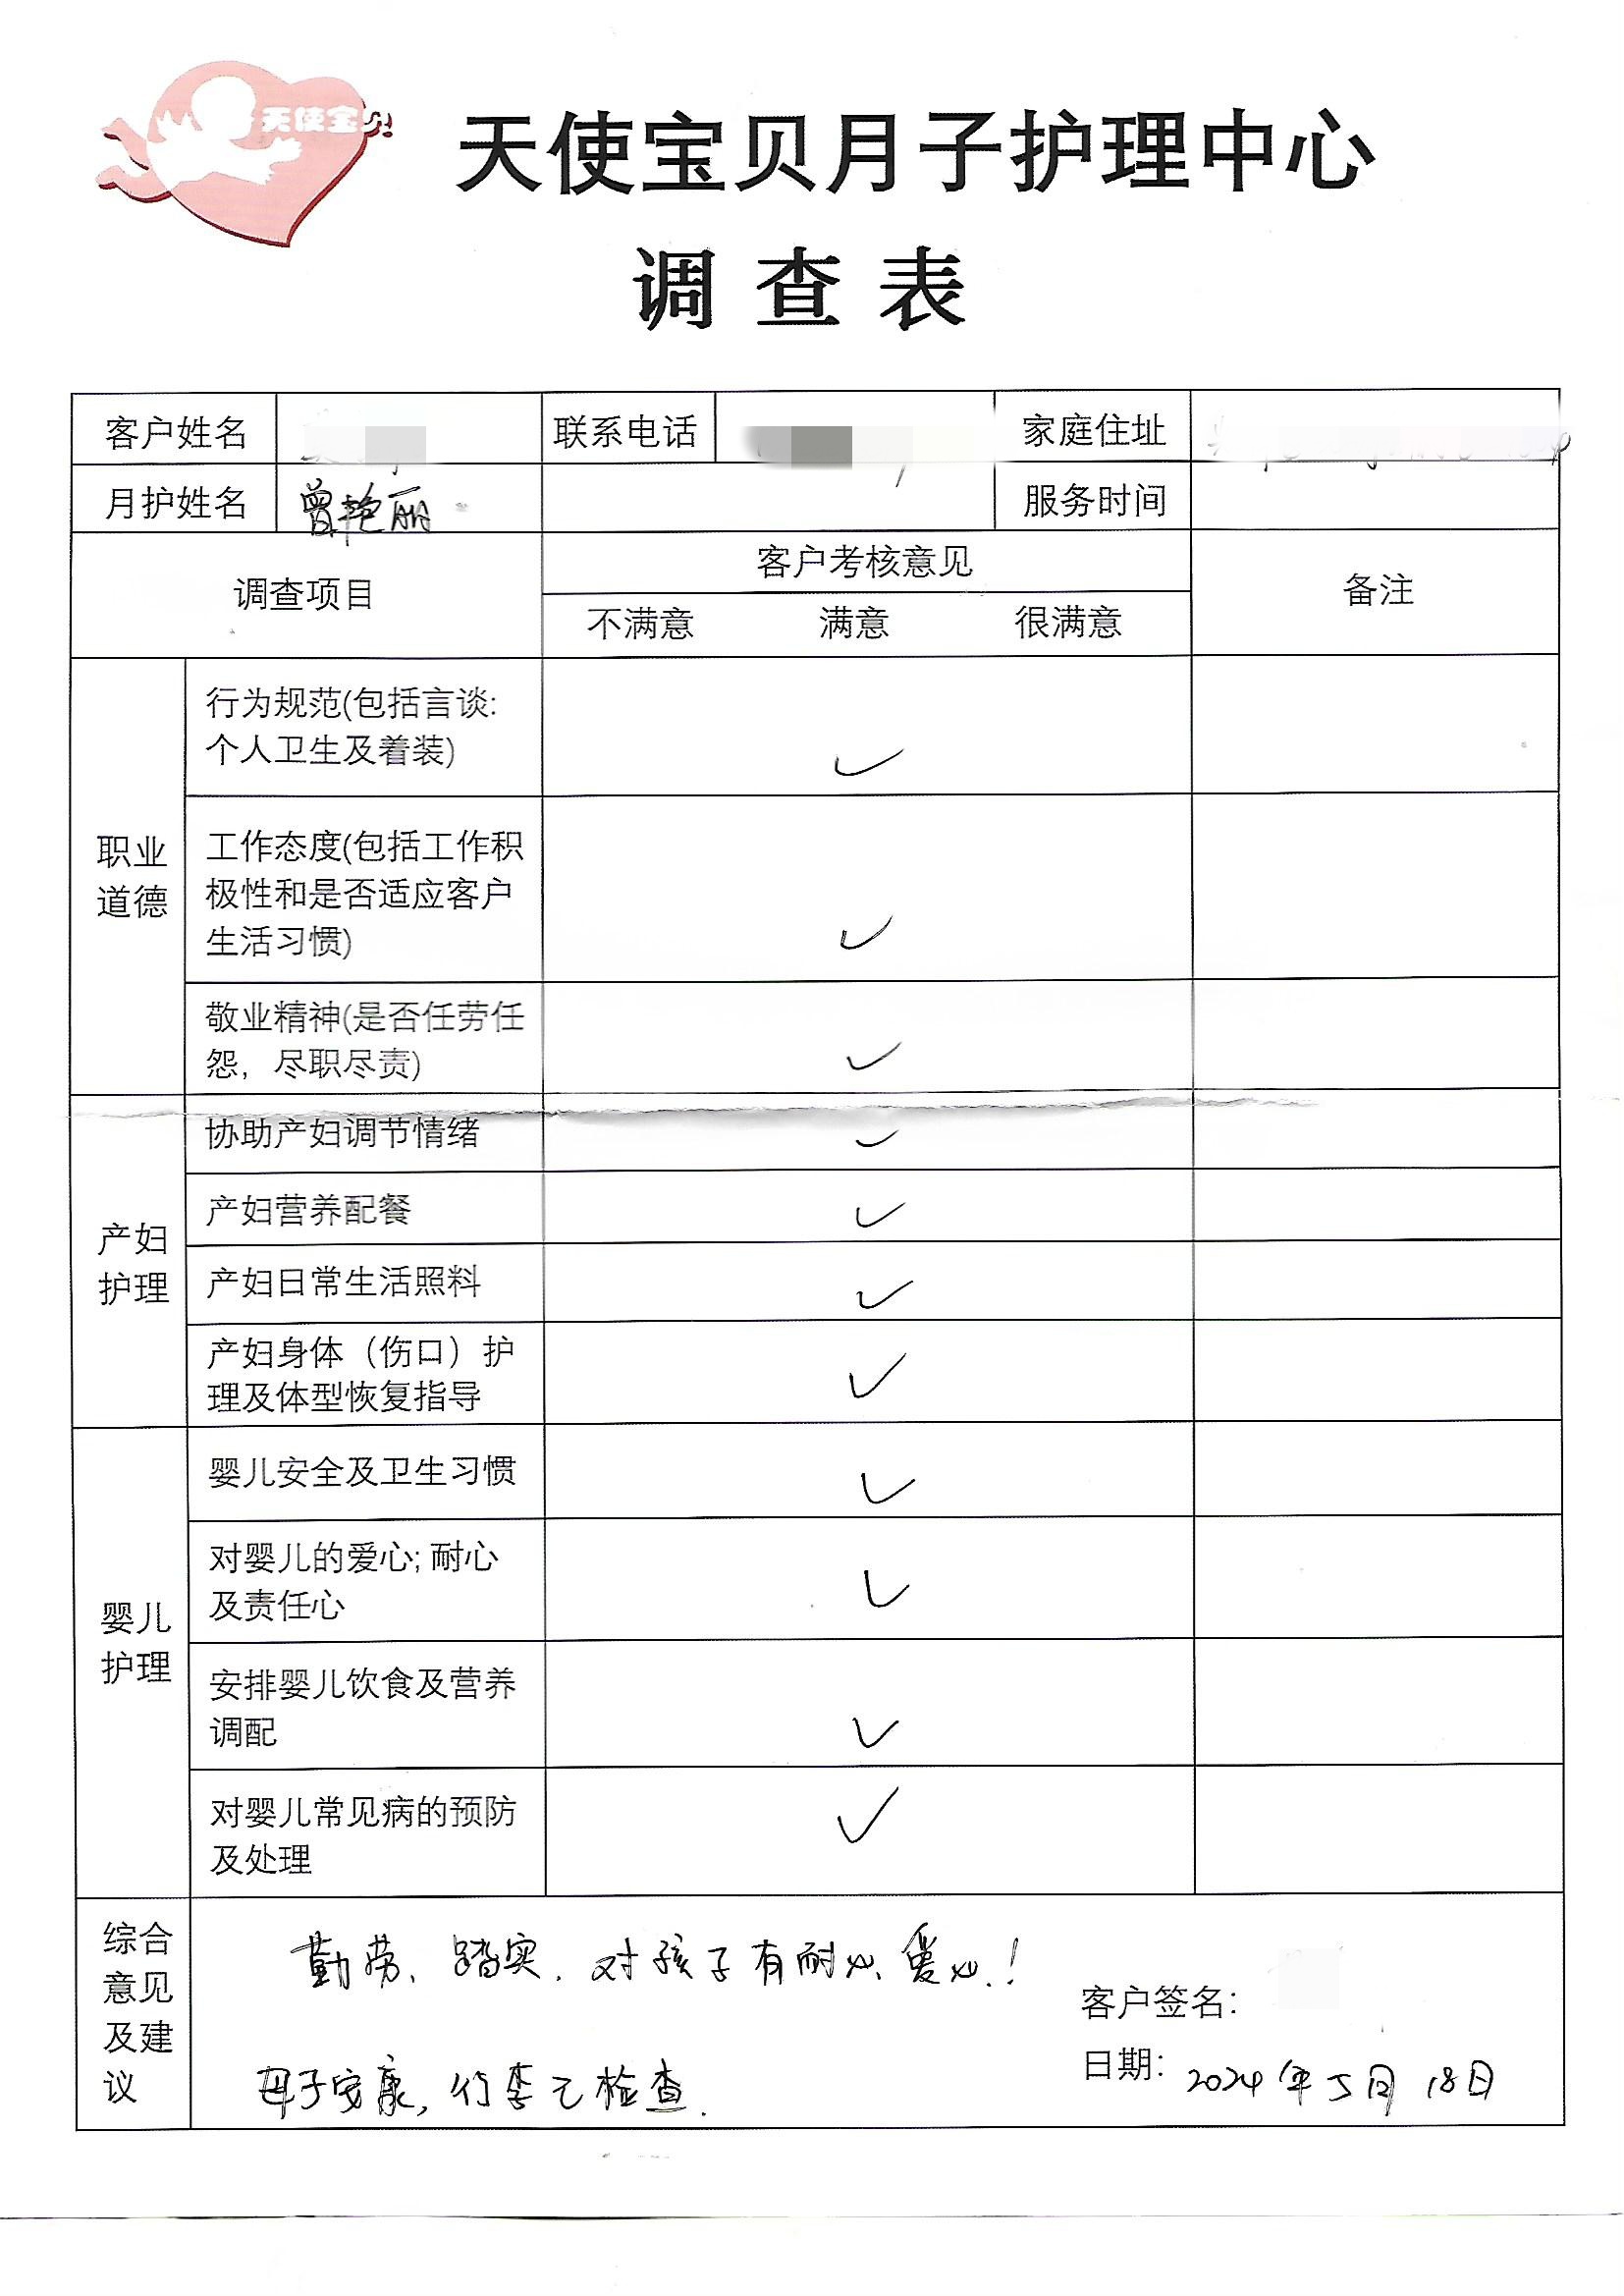 天使宝贝
天使宝贝月子护理中心
调查表
客户姓名 联系电话 家庭住址
月护姓名 曾艳丽 服务时间
调查项目 客户考核意见 备注
不满意 满意 很满意
职业
道德
行为规范(包括言谈:
个人卫生及着装) ✓
工作态度(包括工作积
极性和是否适应客户
生活习惯) ✓
敬业精神(是否任劳任
怨，尽职尽责) ✓
产妇
护理
协助产妇调节情绪 ✓
产妇营养配餐 ✓
产妇日常生活照料 ✓
产妇身体（伤口）护
理及体型恢复指导 ✓
婴儿
护理
婴儿安全及卫生习惯 ✓
对婴儿的爱心; 耐心
及责任心 ✓
安排婴儿饮食及营养
调配 ✓
对婴儿常见病的预防
及处理 ✓
综合
意见
及建
议
勤劳、踏实、对孩子有耐心、爱心！
母子安康，行李已检查.
客户签名:
日期: 2024年5月18日